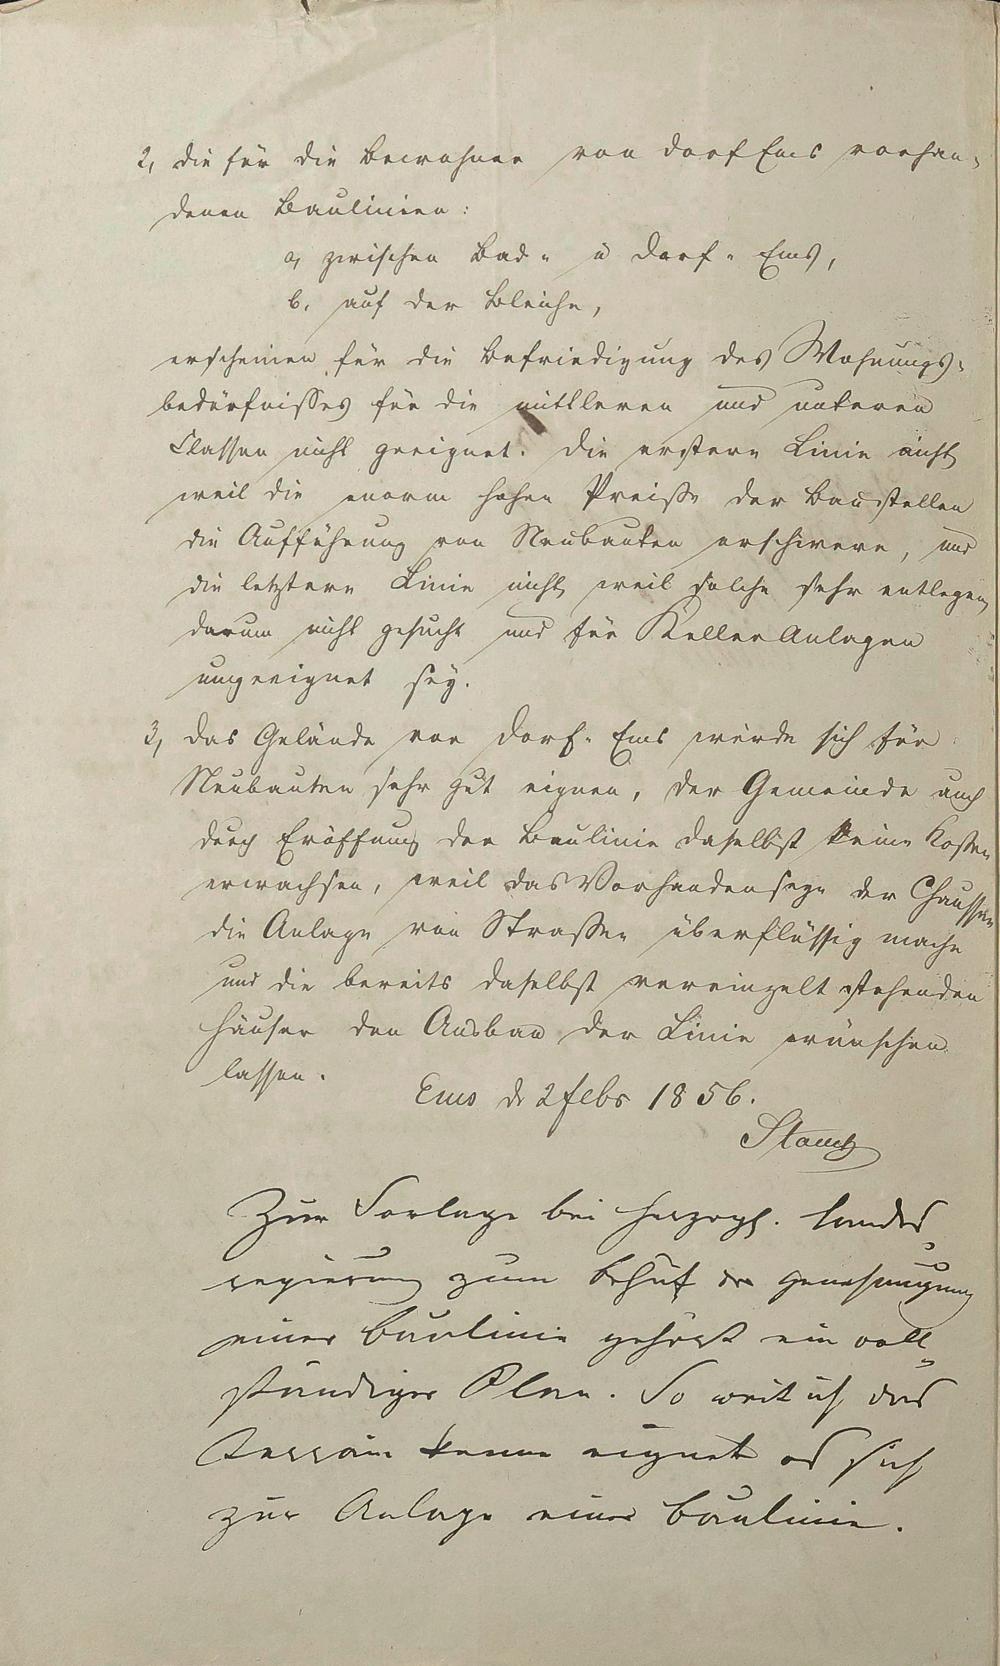 2, die für die Bewohner von Dorf Ems vorhan-
denen Baulinien:
a, zwischen Bad- u Dorf-Ems,
b, auf der Bleiche,
erscheinen für die Befriedigung des Wohnungs-
bedürfnisses für die mittleren und unteren
Classen nicht geeignet. Die erstere Linie nicht
weil die enorm hohen Preiße der Baustellen
die Aufführung von Neubauten erschwere, und
die letztere Linie nicht, weil solche sehr entlegen,
darum nicht gesucht und für Keller Anlagen
ungeeignet sey.
3, Das Gelände von Dorf-Ems würde sich für
Neubauten sehr gut eignen, der Gemeinde auch
durch Eröffnung der Baulinie daselbst keine Kosten
erwachsen, weil das Vorhandenseyn der Chaussee
die Anlage von Straßen überflüssig mache
und die bereits daselbst vereinzelt stehenden
Häuser den Ausbau der Linie wünschen
lassen.
Ems d 2 Febr 1856.
Zur Vorlage bei Herzogl. Landes-
regierung zum Behuf der Genehmigung
einer Baulinie gehört ein voll-
ständiger Plan. So weit ich das
Terrain kenne eignet es sich
zur Anlage einer Baulinie.